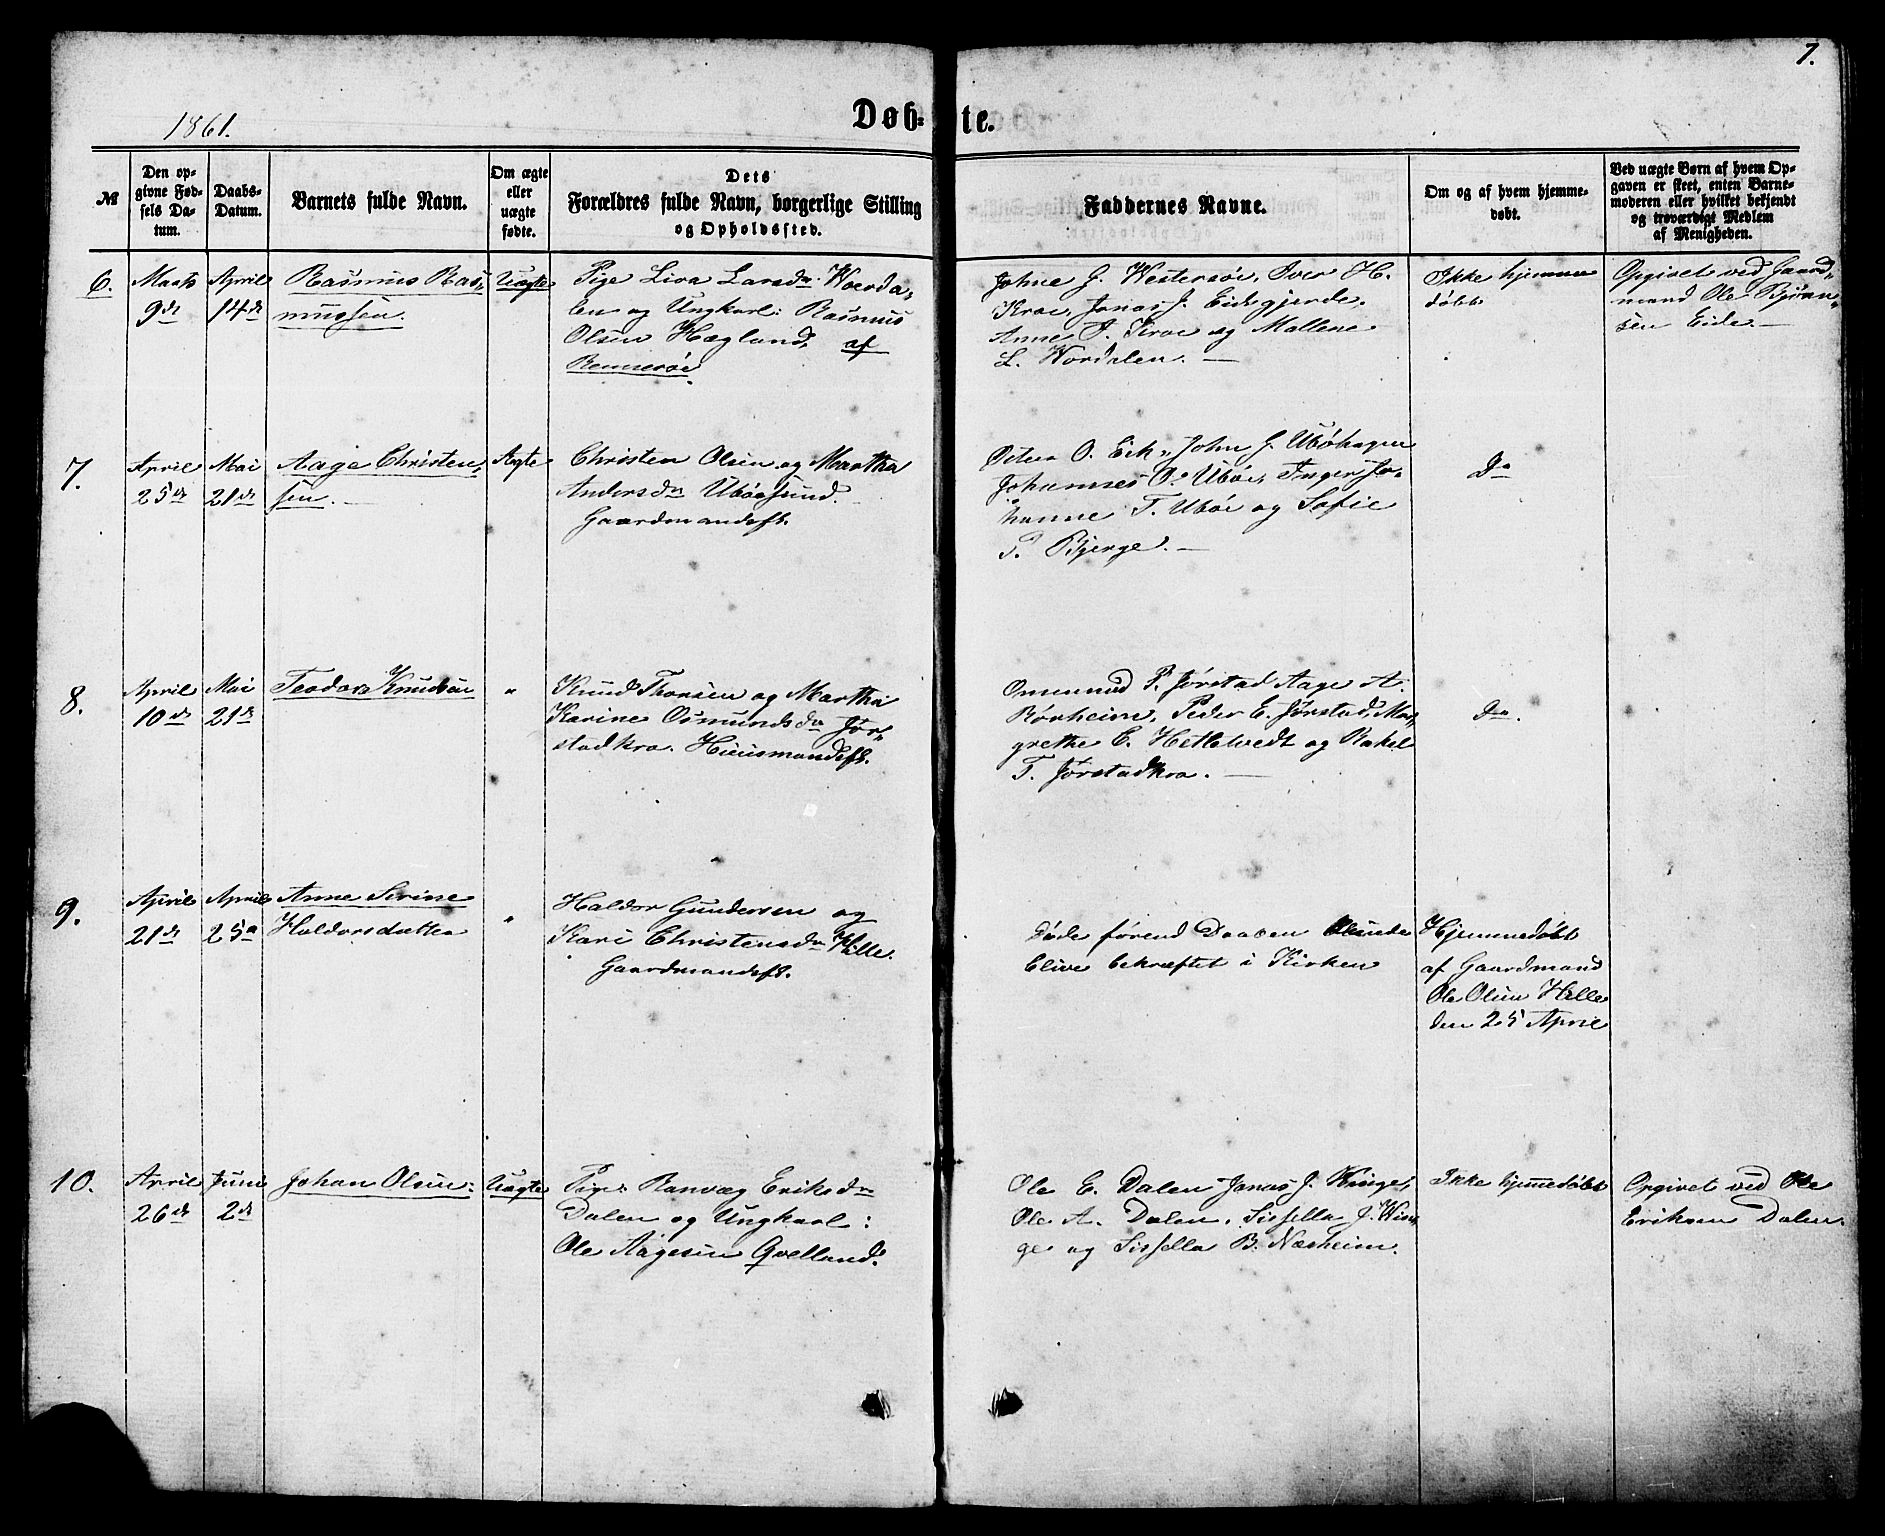 7.
1861.
Døb-te.
№
Den op-
givne Fød-
sels Da-
tum.
Daabs-
Datum.
Barnets fulde Navn.
Om ægte
eller
uægte
fødte.
Dets
Forældres fulde Navn, borgerlige Stilling
og Opholdssted.
Faddernes Navne.
Om og af hvem hjemme-
døbt.
Ved uægte Børn af hvem Op-
gaven er skeet, enten Barne-
moderen eller hvilket bekjendt
og troværdigt Medlem
af Menigheden.
6.
Marts
9de
April
14de
Rasmus Ras-
mussen.
Uægte
Pige Liva Larsdr. Woerda-
len og Ungkarl: Rasmus
Olsen Hægland, af
Rennesøe
Johne J. Westersøe, Iver H.
Kroe, Jonas J. Eidegjerde,
Anne I. Kroe og Mallene
L. Wordalen. —
Ikke hjemme
døbt
Opgivet ved Gaard-
mand Ole Bjørn-
sen Eide. —
7.
April
25de
Mai
21de
Aage Christen-
sen. —
Ægte
Christen Olsen og Martha
Andersdr Ubøesund. —
Gaardmandsf.
Peter O. Eik, John J. Ubøhagen
Johannes O. Ubøe, Inger Jo-
hanne T. Ubøe og Sofie
T. Bjerge. —
Do
8.
April
10de
Mai
21de
Teodor Knudsen
"
Knud Thorsen og Martha
Karine Osmundsdr Jør-
stadkro. Huusmandsf.
Omund P. Jørstad Aage A.
Rørheim, Peder E. Jørstad, Mar-
grethe E. Hetletvedt og Rakel
T. Jørstadkro. —
Do.
9.
April
21de
April
25
Anne Serine
Haldorsdatter
"
Haldor Gundersen og
Kari Christensdr Helle.
Gaardmandsf.
Døde førend Daaben kunde
blive bekræftet i Kirken
Hjemmedøbt
af Gaardmand
Ole Olsen Helle
den 25 April
10.
April
26de
Juni
2de
Johan Olsen.
Uægte
Pige: Ranvæg Eriksdr
Dalen og Ungkarl:
Ole Aagesen Qvelland.
Ole E. Dalen Jonas J. Winge,
Ole A. Dalen, Sissella J. Win-
ge og Sissella B. Næsheim.
Ikke hjemmedøbt
Opgivet ved Ole
Eriksen Dalen.